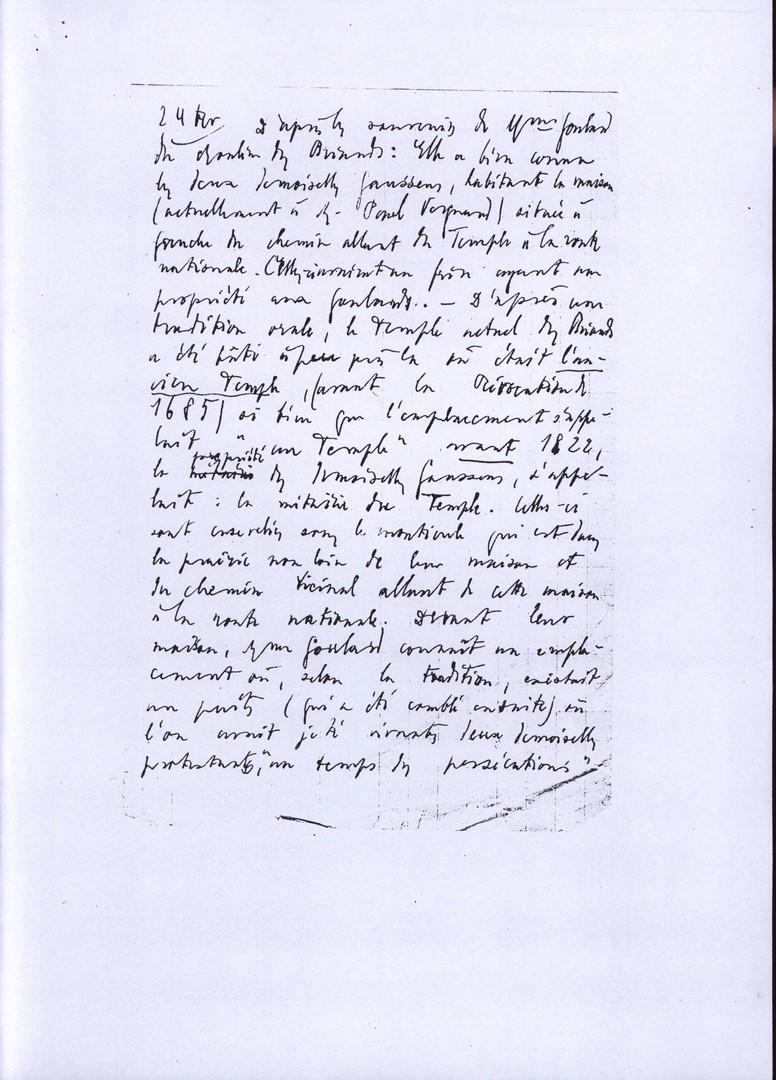 24 ter D'après les souvenirs de Mme Goulard
du moulin des Briands : Elle a bien connu
les deux demoiselles Gaussens, habitant la maison
(actuellement à M. Paul Vergnaud) située à
gauche du chemin allant du Temple à la route
nationale. Celles-ci avaient un frère ayant une
propriété aux Goulards.. — D'après une
tradition orale, le temple actuel des Briands
a été bâti à peu près là où était l'an-
cien Temple, (avant la Révocation de
1685) si bien que l'emplacement s'appe-
lait "au Temple" avant 1822,
la propriété des demoiselles Gaussens, s'appe-
lait : la métairie du Temple. Celles-ci
sont ensevelies sous le monticule qui est dans
la prairie non loin de leur maison et
du chemin vicinal allant de cette maison
à la route nationale. Devant leur
maison, Mme Goulard connaît un empla-
cement où, selon la tradition, existait
un puits (qui a été comblé ensuite) où
l'on avait jeté vivantes deux demoiselles
protestantes, "au temps des persécutions".